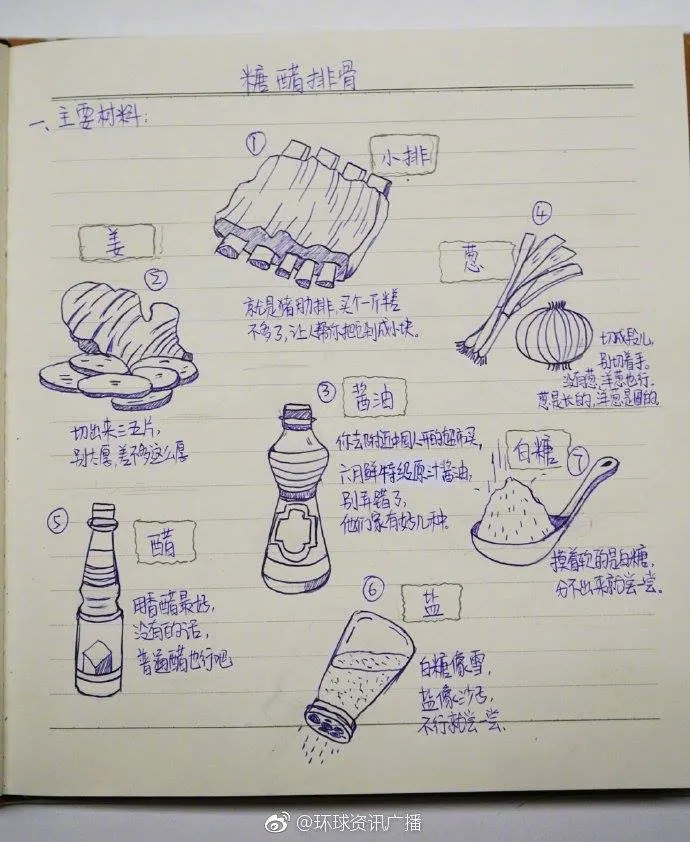 糖醋排骨
一、主要材料:
①
小排
就是猪肋排,买个一斤半差
不多了,让人帮你把它剁成小块。
姜
②
切出来三五片,
别太厚,差不多这么厚
③
酱油
你去附近中国人开的超市买,
六月鲜特级原汁酱油,
别弄错了,
他们家有好几种。
④
葱
切成段儿,
别切着手。
没有葱,洋葱也行。
葱是长的,洋葱是圆的.
⑤
醋
用香醋最好,
没有的话,
普通醋也行吧
⑥
盐
白糖像雪,
盐像沙子,
不行就尝一尝.
白糖
⑦
摸着软的是白糖,
分不出来就尝一尝。
@环球资讯广播